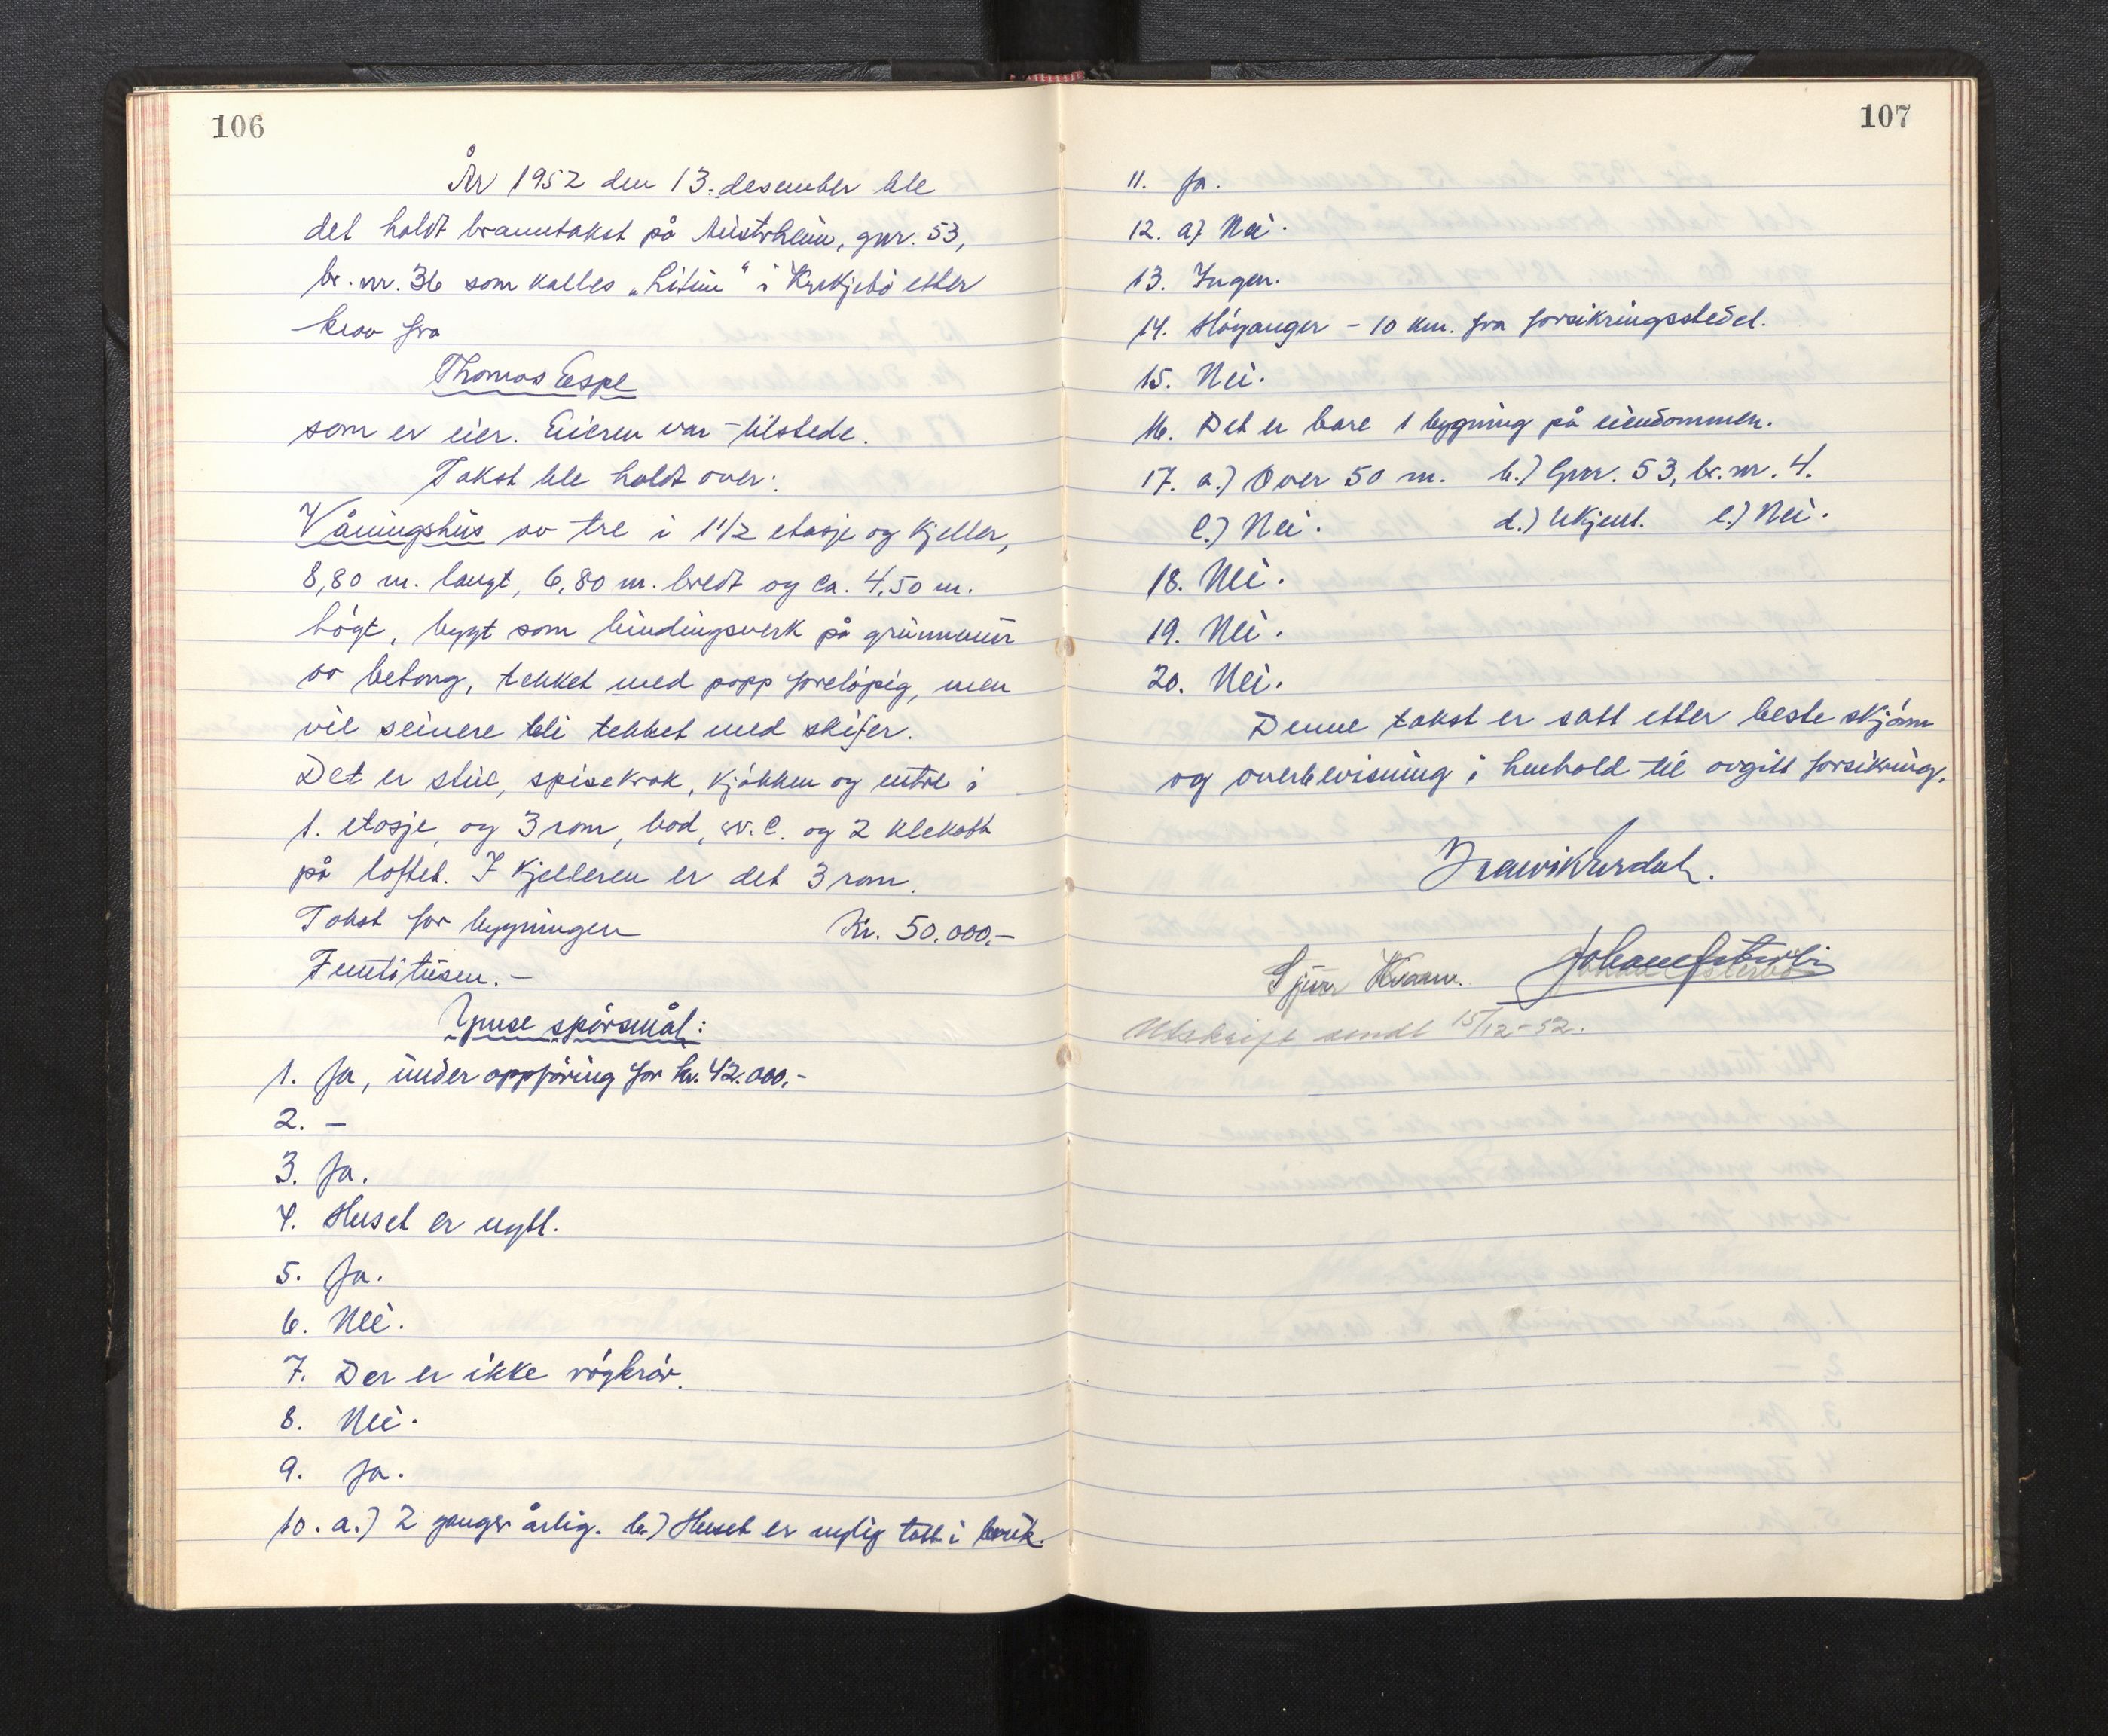 106
År 1952 den 13. desember ble
det holdt branntakst på Austrheim, gnr. 53,
br. nr. 36 som kalles „Litun“ i Kyrkjebö etter
krav fra
Thomas Espe
som er eier. Eieren var tilstede.
Takst ble holdt over:
Våningshus av tre i 1 1/2 etasje og kjeller,
8,80 m. langt, 6,80 m. bredt og ca. 4,50 m.
högt, bygt som bindingsverk på grunnmur
av betong, tekket med papp forelöpig, men
vil seinere bli tekket med skifer.
Det er stue, spisekrok, kjökken og entre i
1. etasje, og 3 rom, bod, w.c. og 2 klekott
på loftet. I kjelleren er det 3 rom.
Takst for bygningen Kr. 50.000.-
Femtitusen.-
Ymse spörsmål:
1. Ja, under oppföring for kr. 42.000.-
2. -
3. Ja.
4. Huset er nytt.
5. Ja.
6. Nei.
7. Der er ikke rögkrör.
8. Nei.
9. Ja.
10. a.) 2 ganger årlig. b.) Huset er nylig tatt i bruk.
107
11. Ja.
12. a) Nei.
13. Ingen.
14. Höyanger - 10 km. fra forsikringsstedet.
15. Nei.
16. Det er bare 1 bygning på eiendommen.
17. a.) Over 50 m. b.) Gnr. 53, br. nr. 4.
c.) Nei. d.) Ukjent. e.) Nei.
18. Nei.
19. Nei.
20. Nei.
Denne takst er satt etter beste skjönn
og overbevisning i henhold til avgitt forsikring.
Sjur Kvamme. Johan Österbö
Utskrift sendt 15/12-52.